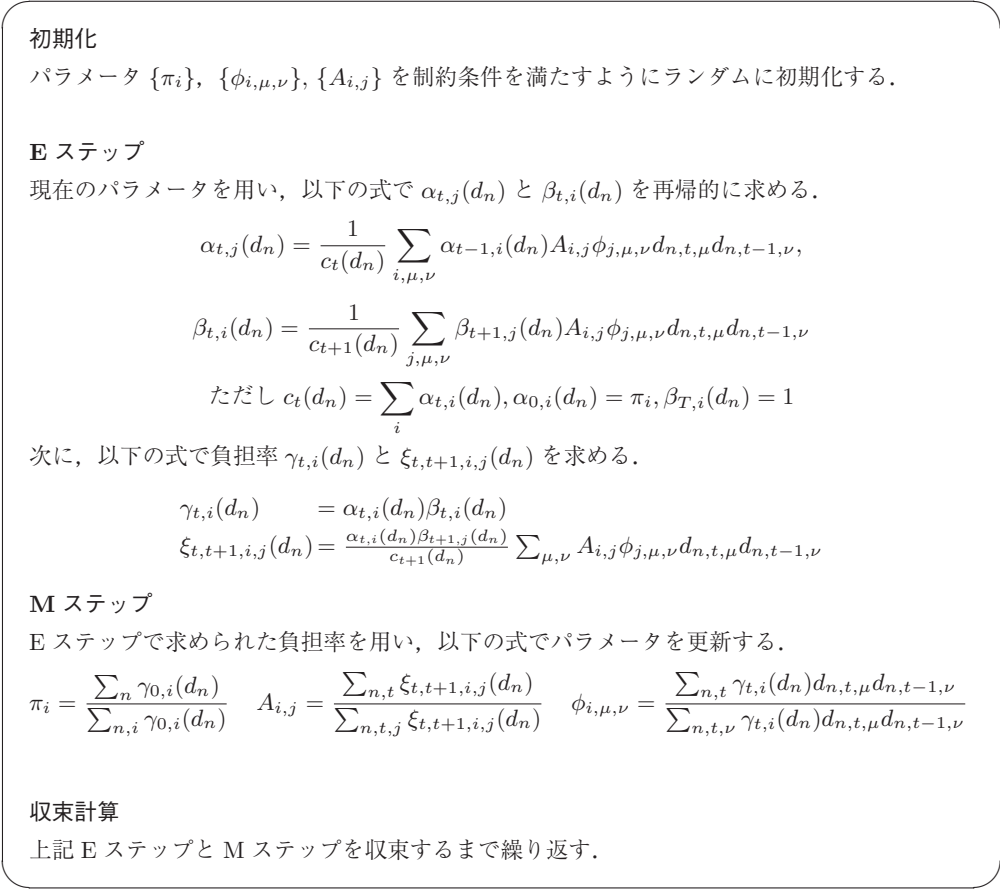 初期化
パラメータ {π_i}，{ϕ_{i,μ,ν}}, {A_{i,j}} を制約条件を満たすようにランダムに初期化する．
E ステップ
現在のパラメータを用い，以下の式で α_{t,j}(d_n) と β_{t,i}(d_n) を再帰的に求める．
α_{t,j}(d_n) = \frac{1}{c_t(d_n)} \sum_{i,μ,ν} α_{t−1,i}(d_n)A_{i,j}ϕ_{j,μ,ν}d_{n,t,μ}d_{n,t−1,ν},
β_{t,i}(d_n) = \frac{1}{c_{t+1}(d_n)} \sum_{j,μ,ν} β_{t+1,j}(d_n)A_{i,j}ϕ_{j,μ,ν}d_{n,t,μ}d_{n,t−1,ν}
ただし c_t(d_n) = \sum_i α_{t,i}(d_n), α_{0,i}(d_n) = π_i, β_{T,i}(d_n) = 1
次に，以下の式で負担率 γ_{t,i}(d_n) と ξ_{t,t+1,i,j}(d_n) を求める．
γ_{t,i}(d_n) = α_{t,i}(d_n)β_{t,i}(d_n)
ξ_{t,t+1,i,j}(d_n) = \frac{α_{t,i}(d_n)β_{t+1,j}(d_n)}{c_{t+1}(d_n)} \sum_{μ,ν} A_{i,j}ϕ_{j,μ,ν}d_{n,t,μ}d_{n,t−1,ν}
M ステップ
E ステップで求められた負担率を用い，以下の式でパラメータを更新する．
π_i = \frac{\sum_n γ_{0,i}(d_n)}{\sum_{n,i} γ_{0,i}(d_n)} A_{i,j} = \frac{\sum_{n,t} ξ_{t,t+1,i,j}(d_n)}{\sum_{n,t,j} ξ_{t,t+1,i,j}(d_n)} ϕ_{i,μ,ν} = \frac{\sum_{n,t} γ_{t,i}(d_n)d_{n,t,μ}d_{n,t−1,ν}}{\sum_{n,t,ν} γ_{t,i}(d_n)d_{n,t,μ}d_{n,t−1,ν}}
収束計算
上記 E ステップと M ステップを収束するまで繰り返す．